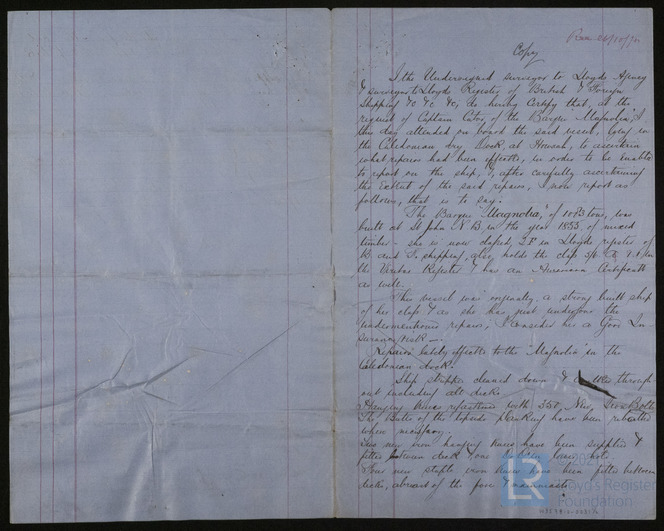 Rec 26/10/70
Copy
I the Undersigned surveyor to Lloyds Agency
& surveyor to Lloyds Registry of British & Foreign
Shipping &c &c &c, do hereby Certify that, at the
request of Captain of the Barque "Magnolia", I
this day attended on board the said vessel, lying in
the Caledonian dry Dock, at to ascertain
what repairs had been effected, in order to be enabled
to report on the ship, & after carefully ascertaining
the Extent of the said repairs, I now report as
follows, that is to say:
The Barque "Magnolia," of 1073 tons, was
built at St John N.B. in the year 1853, of mixed
timber - she is now classed, in Lloyds register of
B and F. shipping, also holds the class 3/3 in
the Veritas Register & has an American Certificate
as well.
This vessel was originally a strong built ship
of her class & as she has just undergone the
undermentioned repairs, I consider her a Good In-
surance risk -
Repairs lately effected to the "Magnolia" in the
Caledonian dock:
Ship stripped cleaned down & through-
out including all decks.
Hanging knees refastened with 350 New Iron Bolts
The Butts of the topside planking have been rebolted
when necessary
Two new iron hanging knees have been supplied &
fitted between deck & one in lower hold
Four new staple iron knees have been fitted between
decks, abreast of the fore & mainmast
LR
© 202
Lloyd's Register
Foundation